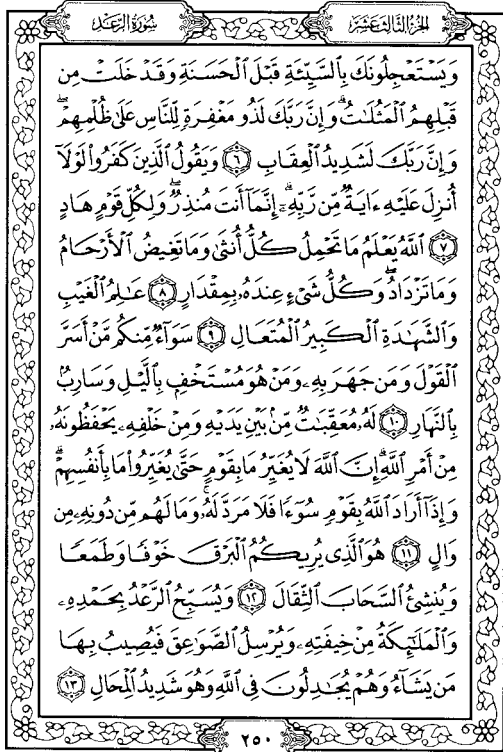 سُورَةُ الرَّعْدِ
الجُزْءُ الثَّالِثَ عَشَرَ
وَيَسْتَعْجِلُونَكَ بِٱلسَّيِّئَةِ قَبْلَ ٱلْحَسَنَةِ وَقَدْ خَلَتْ مِن
قَبْلِهِمُ ٱلْمَثُلَٰتُ ۗ وَإِنَّ رَبَّكَ لَذُو مَغْفِرَةٍ لِّلنَّاسِ عَلَىٰ ظُلْمِهِمْ ۖ
وَإِنَّ رَبَّكَ لَشَدِيدُ ٱلْعِقَابِ ٦ وَيَقُولُ ٱلَّذِينَ كَفَرُوا۟ لَوْلَآ
أُنزِلَ عَلَيْهِ ءَايَةٌ مِّن رَّبِّهِۦٓ ۗ إِنَّمَآ أَنتَ مُنذِرٌ ۖ وَلِكُلِّ قَوْمٍ هَادٍ
٧ ٱللَّهُ يَعْلَمُ مَا تَحْمِلُ كُلُّ أُنثَىٰ وَمَا تَغِيضُ ٱلْأَرْحَامُ
وَمَا تَزْدَادُ ۖ وَكُلُّ شَىْءٍ عِندَهُۥ بِمِقْدَارٍ ٨ عَٰلِمُ ٱلْغَيْبِ
وَٱلشَّهَٰدَةِ ٱلْكَبِيرُ ٱلْمُتَعَالِ ٩ سَوَآءٌ مِّنكُم مَّنْ أَسَرَّ
ٱلْقَوْلَ وَمَن جَهَرَ بِهِۦ وَمَنْ هُوَ مُسْتَخْفٍۭ بِٱلَّيْلِ وَسَارِبٌۢ
بِٱلنَّهَارِ ١٠ لَهُۥ مُعَقِّبَٰتٌ مِّنۢ بَيْنِ يَدَيْهِ وَمِنْ خَلْفِهِۦ يَحْفَظُونَهُۥ
مِنْ أَمْرِ ٱللَّهِ ۗ إِنَّ ٱللَّهَ لَا يُغَيِّرُ مَا بِقَوْمٍ حَتَّىٰ يُغَيِّرُوا۟ مَا بِأَنفُسِهِمْ ۗ
وَإِذَآ أَرَادَ ٱللَّهُ بِقَوْمٍ سُوٓءًا فَلَا مَرَدَّ لَهُۥ ۚ وَمَا لَهُم مِّن دُونِهِۦ مِن
وَالٍ ١١ هُوَ ٱلَّذِى يُرِيكُمُ ٱلْبَرْقَ خَوْفًا وَطَمَعًا
وَيُنشِئُ ٱلسَّحَابَ ٱلثِّقَالَ ١٢ وَيُسَبِّحُ ٱلرَّعْدُ بِحَمْدِهِۦ
وَٱلْمَلَٰٓئِكَةُ مِنْ خِيفَتِهِۦ وَيُرْسِلُ ٱلصَّوَٰعِقَ فَيُصِيبُ بِهَا
مَن يَشَآءُ وَهُمْ يُجَٰدِلُونَ فِى ٱللَّهِ وَهُوَ شَدِيدُ ٱلْمِحَالِ ١٣
٢٥٠